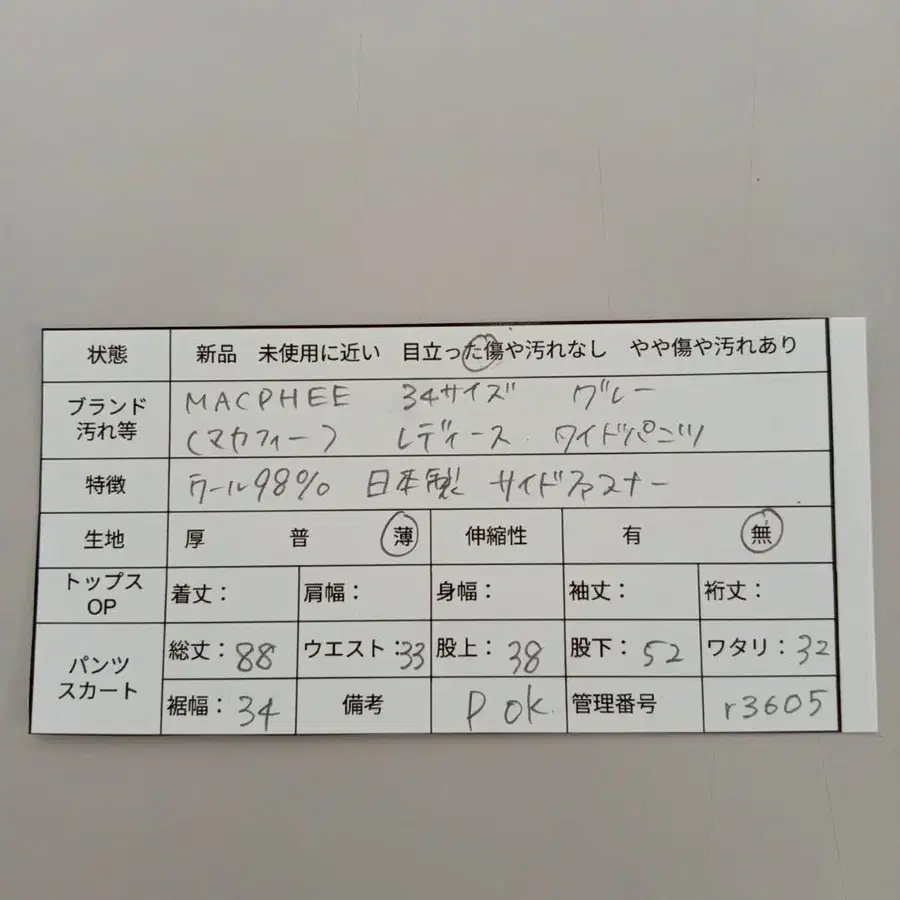 状態 新品 未使用に近い 目立った傷や汚れなし やや傷や汚れあり
ブランド 汚れ等 MACPHEE 34サイズ グレー
(マカフィー) レディース ワイドパンツ
特徴 ウール98% 日本製 サイドファスナー
生地 厚 普 薄 伸縮性 有 無
トップス OP 着丈: 肩幅: 身幅: 袖丈: 裄丈:
パンツ スカート 総丈:88 ウエスト:33 股上:38 股下:52 ワタリ:32
裾幅:34 備考 P OK 管理番号 r3605